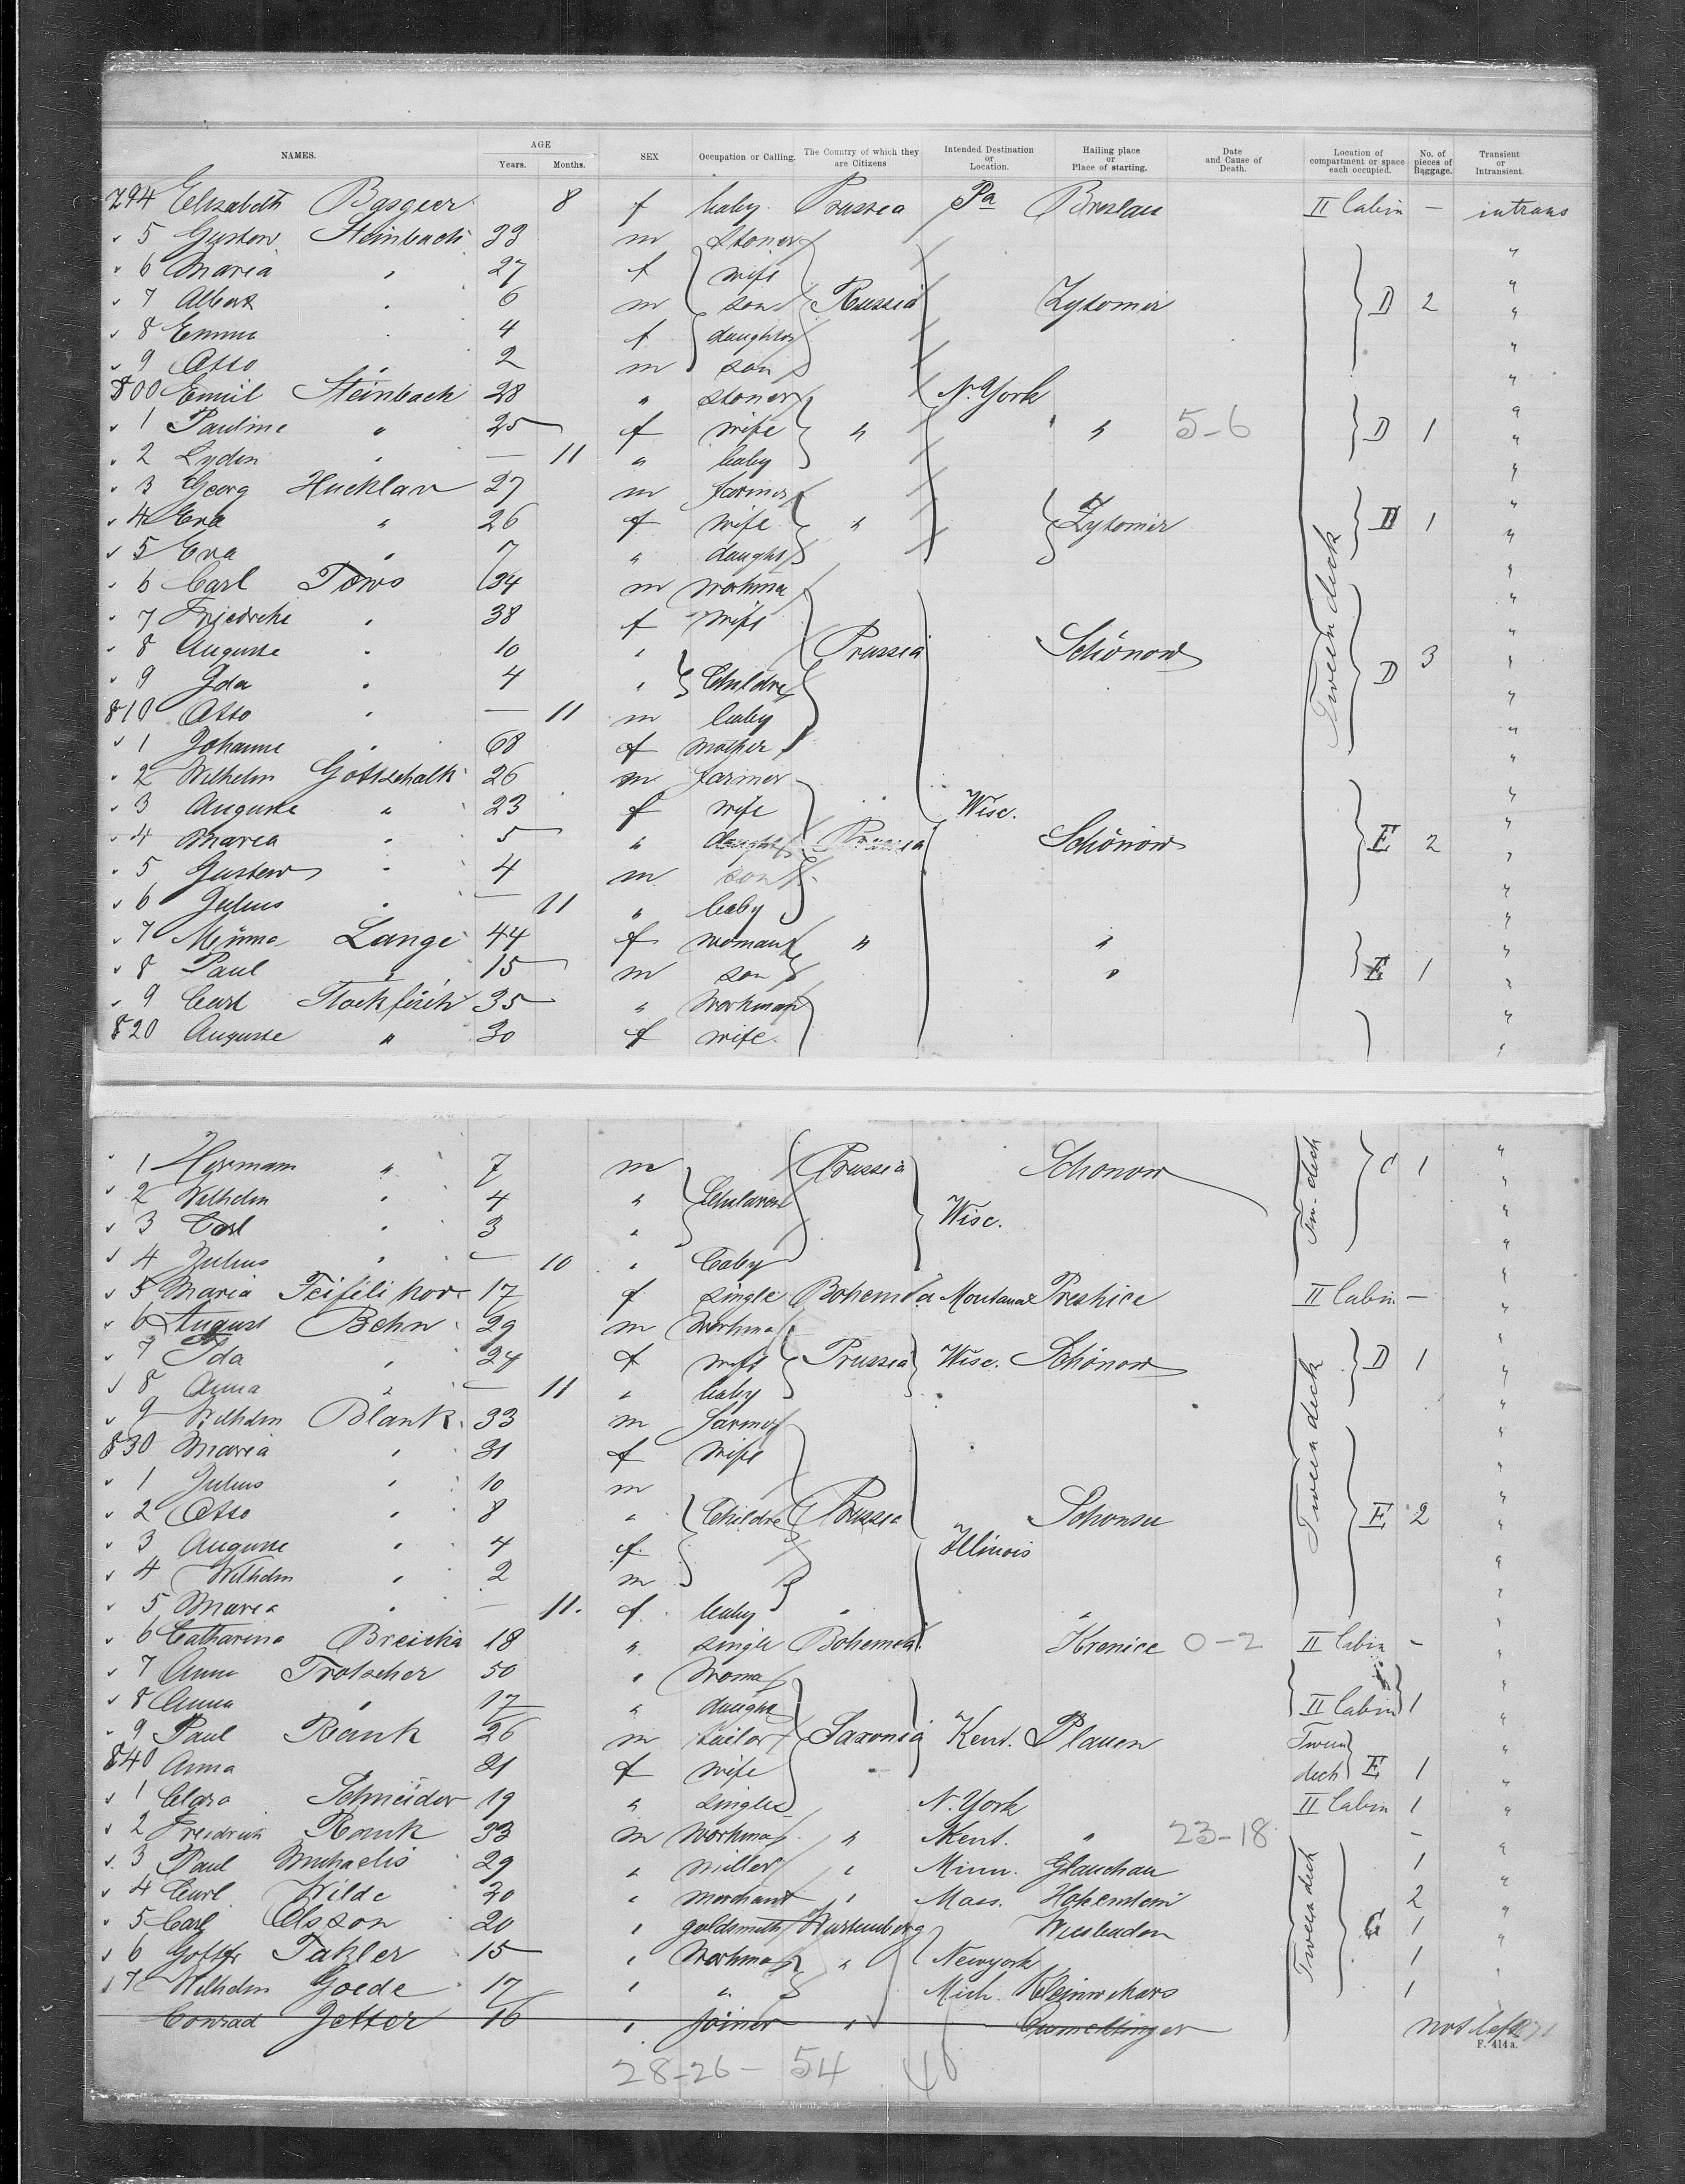 NAMES. AGE Years. Months. SEX Occupation or Calling. The Country of which they are Citizens Intended Destination or Location. Hailing place or Place of starting. Date and Cause of Death. Location of compartment or space each occupied. No. of pieces of Baggage. Transient or Intransient.
794 Elisabeth 8 f baby Prussia Pa Breslau II Cabin — intrans
" 5 Gustow Steinbach 33 m "
" 6 Maria " 27 f wife "
" 7 Albert " 6 m son Russia Zytomir D 2 "
" 8 Emma " 4 f daughter "
" 9 Otto " 2 m son "
800 Emil Steinbach 28 " N. York "
" 1 Pauline " 25 f wife " " 5-6 D 1 "
" 2 " — 11 " baby "
" 3 Georg Hucklau 27 m farmer "
" 4 Eva " 26 f wife " Zytomir D 1 "
" 5 Eva " 7 " daught "
" 6 Carl Tows 34 m workma "
" 7 Friedreke " 38 f wife "
" 8 Auguste " 10 " Prussia Schönow 3 "
" 9 Ida " 4 " Childre D "
810 Otto " — 11 m baby Tween deck "
" 1 Johanne " 68 f mother "
" 2 Wilhelm Gottschalk 26 m farmer "
" 3 Auguste " 23 f wife Wisc. "
" 4 Maria " 5 " daught Prussia Schönow E 2 "
" 5 Gustow " 4 m son "
" 6 Julius " — 11 " baby "
" 7 Minna Lange 44 f woman " " "
" 8 Paul " 15 m son " E 1 "
" 9 Carl Stockfisch 35 " workman "
820 Auguste " 30 f wife "
" 1 Hermann " 7 m Prussia Schonow Tw. deck C 1 "
" 2 Wilhelm " 4 " Children "
" 3 Carl " 3 " Wisc. "
" 4 Julius " — 10 " baby "
" 5 Maria 17 f single Bohemia Montana Preshice II Cabin — "
" 6 August Behn 29 m workma "
" 7 Ida " 24 f wife Prussia Wisc. Schönow D 1 "
" 8 Anna " — 11 " baby "
" 9 Wilhelm Blank 33 m farmer Tween deck "
830 Maria " 31 f wife "
" 1 Julius " 10 m "
" 2 Otto " 8 " Childre Prussia Schonsee E 2 "
" 3 Auguste " 4 f Illinois "
" 4 Wilhelm " 2 m "
" 5 Maria " — 11. f baby " " "
" 6 Catharina 18 " single Bohemea Krenice 0-2 II Cabin — "
" 7 Anna Trotscher 50 " Woma "
" 8 Anna " 17 " daught II Cabin 1 "
" 9 Paul Rank 26 m tailor Saxonia Kent. Plauen Tween "
840 Anna 21 f wife deck E 1 "
" 1 Clara Schneider 19 " single N. York II Cabin 1 "
" 2 Friedrich Rank 33 m workma " Kent. " 23-18 — "
" 3 Paul Michaelis 29 " miller " Minn. Glauchau 1 "
" 4 Carl Wilde 30 " merchant " Mass. Hohenstein 2 "
" 5 Carl Olsson 20 " goldsmith Wurtemberg Wiesbaden Tween deck 1 "
" 6 Gottfr 15 " workma " Newyork 1 "
" 7 Wilhelm Goede 17 " " Mich. 1
Conrad Jetter 16 " joiner " not left
F. 414 a.
28-26- 54